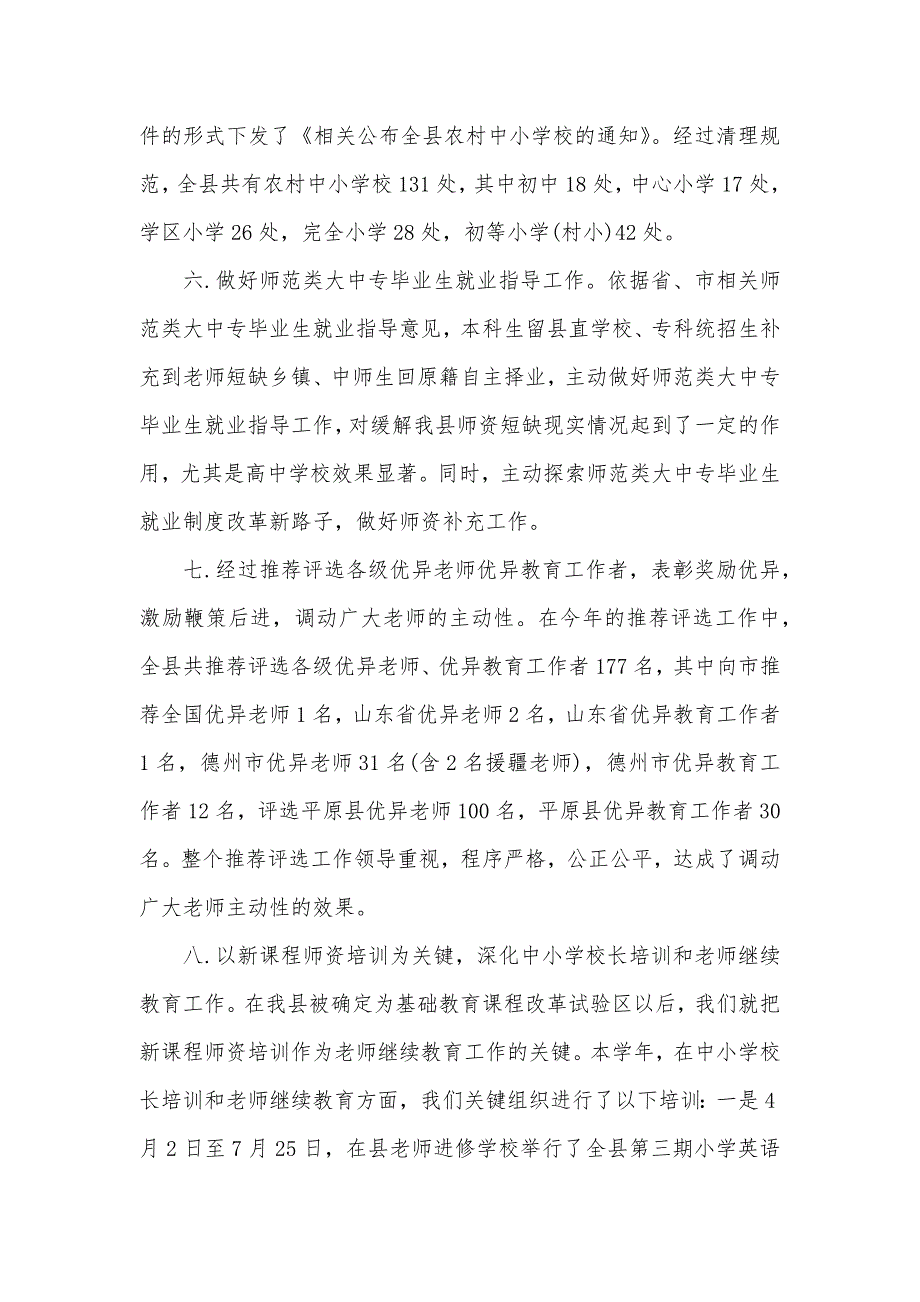 件的形式下发了《相关公布全县农村中小学校的通知》。经过清理规
范，全县共有农村中小学校 131 处，其中初中 18 处，中心小学 17 处，
学区小学 26 处，完全小学 28 处，初等小学(村小)42 处。
六.做好师范类大中专毕业生就业指导工作。依据省、市相关师
范类大中专毕业生就业指导意见，本科生留县直学校、专科统招生补
充到老师短缺乡镇、中师生回原籍自主择业，主动做好师范类大中专
毕业生就业指导工作，对缓解我县师资短缺现实情况起到了一定的作
用，尤其是高中学校效果显著。同时，主动探索师范类大中专毕业生
就业制度改革新路子，做好师资补充工作。
七.经过推荐评选各级优异老师优异教育工作者，表彰奖励优异，
激励鞭策后进，调动广大老师的主动性。在今年的推荐评选工作中，
全县共推荐评选各级优异老师、优异教育工作者 177 名，其中向市推
荐全国优异老师 1 名，山东省优异老师 2 名，山东省优异教育工作者
1 名，德州市优异老师 31 名(含 2 名援疆老师)，德州市优异教育工
作者 12 名，评选平原县优异老师 100 名，平原县优异教育工作者 30
名。整个推荐评选工作领导重视，程序严格，公正公平，达成了调动
广大老师主动性的效果。
八.以新课程师资培训为关键，深化中小学校长培训和老师继续
教育工作。在我县被确定为基础教育课程改革试验区以后，我们就把
新课程师资培训作为老师继续教育工作的关键。本学年，在中小学校
长培训和老师继续教育方面，我们关键组织进行了以下培训：一是 4
月 2 日至 7 月 25 日，在县老师进修学校举行了全县第三期小学英语